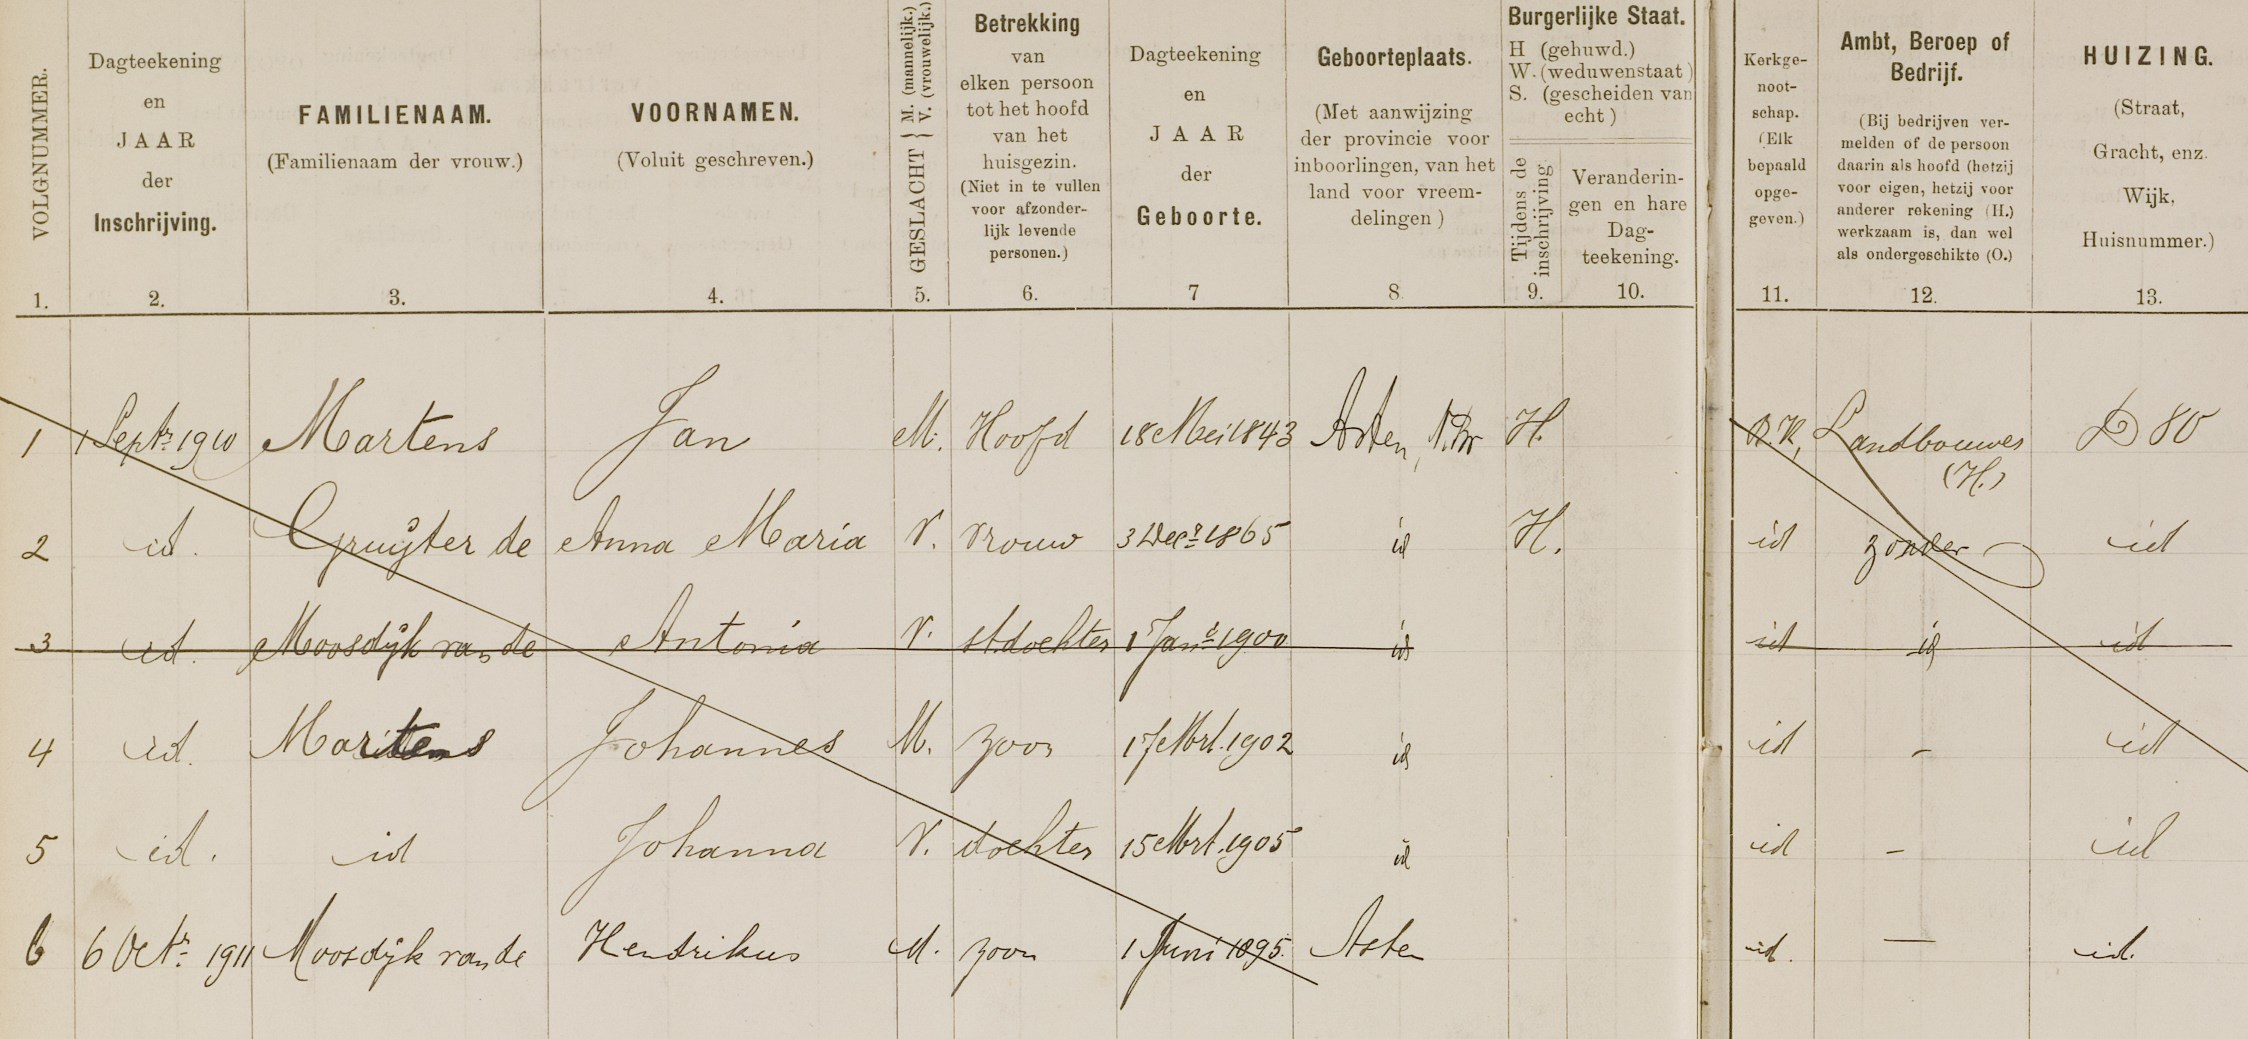 VOLGNUMMER.
1.
Dagteekening
en
JAAR
der
Inschrijving.
2.
FAMILIENAAM.
(Familienaam der vrouw.)
3.
VOORNAMEN.
(Voluit geschreven.)
4.
GESLACHT { M. (mannelijk.)
V. (vrouwelijk.)
5.
Betrekking
van
elken persoon
tot het hoofd
van het
huisgezin.
(Niet in te vullen
voor afzonder-
lijk levende
personen.)
6.
Dagteekening
en
JAAR
der
Geboorte.
7
Geboorteplaats.
(Met aanwijzing
der provincie voor
inboorlingen, van het
land voor vreem-
delingen)
8.
Burgerlijke Staat.
H (gehuwd.)
W. (weduwenstaat)
S. (gescheiden van
echt)
Tijdens de
inschrijving
9.
Veranderin-
gen en hare
Dag-
teekening.
10.
Kerkge-
noot-
schap.
(Elk
bepaald
opge-
geven.)
11.
Ambt, Beroep of
Bedrijf.
(Bij bedrijven ver-
melden of de persoon
daarin als hoofd (hetzij
voor eigen, hetzij voor
anderer rekening (H.)
werkzaam is, dan wel
als ondergeschikte (O.)
12.
HUIZING.
(Straat,
Gracht, enz.
Wijk,
Huisnummer.)
13.
1 1 Septr. 1910 Martens Jan M. Hoofd 18 Mei 1843 Asten, N.Br H. R.K, Landbouwer (H.) D 80
2 id. Gruijter de Anna Maria V. vrouw 3 Decr. 1865 id H. id zonder id
3 id. Moosdijk van de Antonia V. st.dochter 1 Jani 1900 id id id id
4 id. Martens Johannes M. zoon 17 Mrt. 1902 id id - id
5 id. id Johanna V. dochter 15 Mrt. 1905 id id - id
6 6 Octr. 1911 Moosdijk van de Hendrikus M. zoon 1 Juni 1895. Asten id. — id.